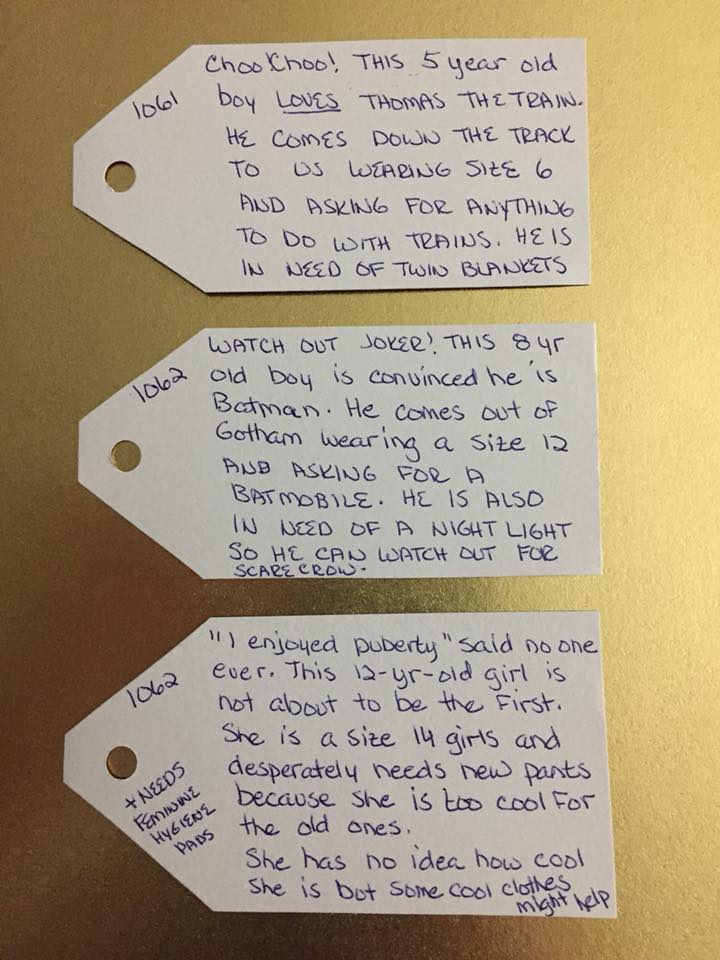 1061
Choo Choo! THIS 5 year old
boy LOVES THOMAS THE TRAIN.
HE COMES DOWN THE TRACK
TO US WEARING SIZE 6
AND ASKING FOR ANYTHING
TO DO WITH TRAINS. HE IS
IN NEED OF TWIN BLANKETS
1062
WATCH OUT JOKER! THIS 8 yr
old boy is convinced he is
Batman. He comes out of
Gotham wearing a size 12
AND ASKING FOR A
BATMOBILE. HE IS ALSO
IN NEED OF A NIGHT LIGHT
SO HE CAN WATCH OUT FOR
SCARECROW.
1062
"I enjoyed puberty" said no one
ever. This 12-yr-old girl is
not about to be the First.
She is a size 14 girls and
desperately needs new pants
because she is too cool For
the old ones.
She has no idea how cool
she is but some cool clothes
might help
+ NEEDS
FEMININE
HYGIENE
PADS